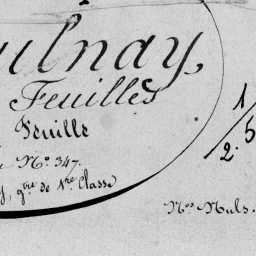 ulnay,
Feuilles
Feuille
N° 347.
gre de 1re Classe
1/5
2.
Nos Muls.